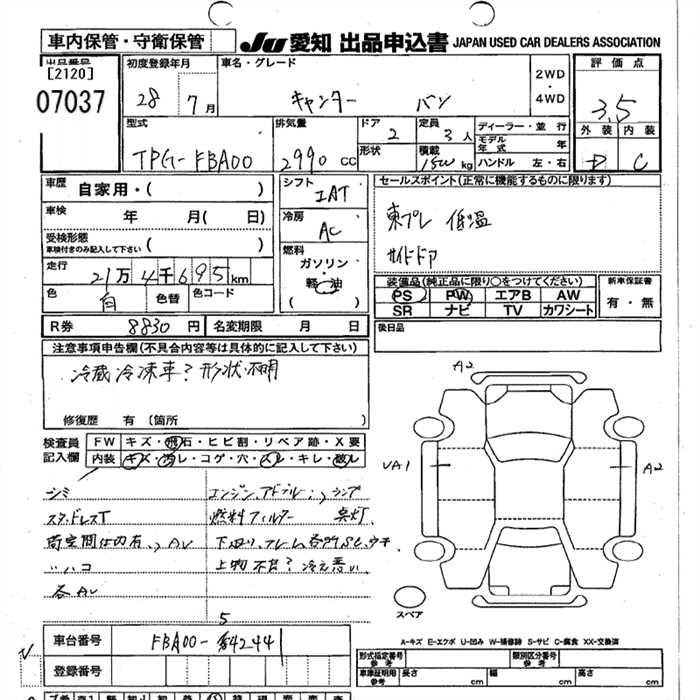 車内保管・守衛保管
JU 愛知 出品申込書 JAPAN USED CAR DEALERS ASSOCIATION
出品番号
[2120]
07037
初度登録年月
28年 7月
車名・グレード
キャンター バン
2WD
・
4WD
評価点
3.5
外装 内装
D C
型式
TPG-FBA00
排気量
2990 cc
ドア
2
形状
定員
3人
積載
1500 kg
ディーラー・並行
モデル年式 年
ハンドル 左・右
車歴 自家用・( )
車検 年 月( 日)
受検形態
車検付きのみ記入して下さい ( )
走行
21万4千695km
色 白 色替 色コード
シフト
IAT
冷房
AC
燃料
ガソリン
・
軽油
( )
セールスポイント(正常に機能するものに限ります)
東プレ 低温
サイドドア
装備品(純正品に限り○をつけてください)
PS PW エアB AW
SR ナビ TV カワシート
新車保証書
有・無
R券 8830円 名変期限 月 日
後日品
注意事項申告欄(不具合内容等は具体的に記入して下さい)
冷蔵冷凍車?形状不明
修復歴 有(箇所 )
検査員
記入欄
FW キズ・飛石・ヒビ割・リペア跡・X要
内装 キズ・汚レ・コゲ・穴・スレ・キレ・破レ
シミ
スタッドレスT
荷室間仕切有、AU
〃ハコ
各AU
エンジン、アドブルー、ランプ
燃料フィルター 点灯
下廻り、フレーム各所S
上物不良?冷え悪い
A2
UA1
A2
スペア
A-キズ E-エクボ U-凹み W-補修跡 S-サビ C-腐食 XX-交換済
5
車台番号 FBA00-542441
登録番号
形式指定番号
参考
類別区分番号
参考
車庫証明用
参考
長さ cm 幅 cm 高さ cm